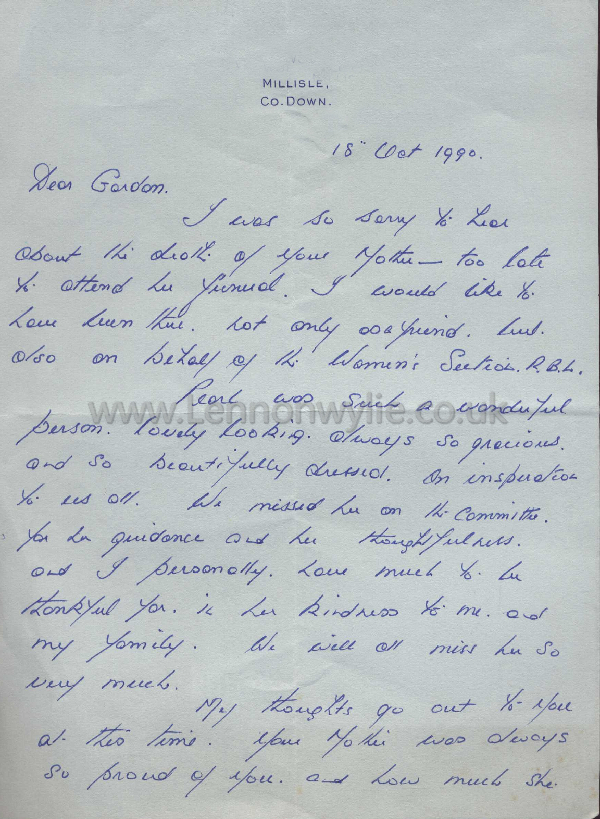 MILLISLE,
CO. DOWN.
18" Oct 1990.
Dear Gordon.
I was so sorry to hear
about the death of your Mother — too late
to attend her funeral. I would like to
have been there. not only as a friend. but.
also on behalf of the Women's Section. R.B.L.
Pearl was such a wonderful
www.Lennonwylie.co.uk
person. Lovely looking. always so gracious.
and so beautifully dressed. An inspiration
to us all. We missed her on the Committee.
for her guidance and her thoughtfulness.
and I personally. have much to be
thankful for. in her kindness to me. and
my family. We will all miss her so
very much.
My thoughts go out to you
at this time. Your Mother was always
so proud of you. and how much she